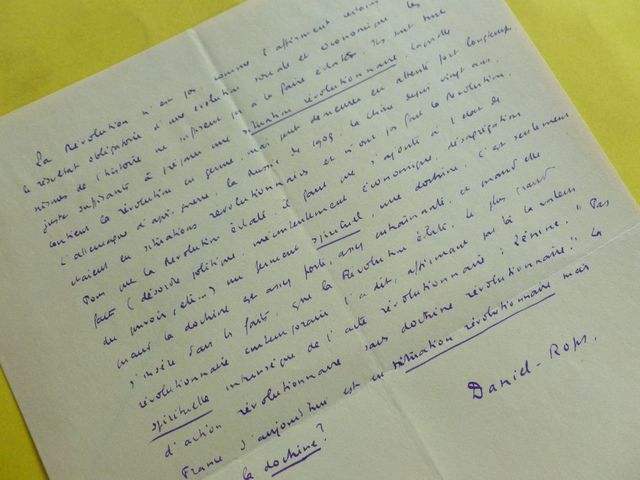 La Révolution n'est pas, comme l'affirment certains
le résultat obligatoire d'une évolution sociale et économique. Les
de l'histoire ne suffisent pas à la faire éclater. Ils sont tout
juste suffisants à préparer une situation révolutionnaire, laquelle
contient la révolution en germe, mais peut demeurer en attente fort longtemps.
L'Allemagne d'après-guerre, la Russie de 1905, la Chine depuis vingt ans,
étaient en situations révolutionnaires et n'ont pas fait la Révolution.
Pour que la Révolution éclate il faut que s'ajoute à l'état de
fait (désordre politique, mécontentement économique, désagrégation
du pouvoir, etc...) un ferment spirituel, une doctrine. C'est seulement
quand la doctrine est assez forte, assez entraînante, et quand elle
s'insère dans les faits, que la Révolution éclate. Le plus grand
révolutionnaire contemporain l'a dit, affirmant par là la valeur
spirituelle intrinsèque de l'acte révolutionnaire : Lénine. "Pas
d'action révolutionnaire sans doctrine révolutionnaire". La
France d'aujourd'hui est en situation révolutionnaire mais
la doctrine ?
Daniel-Rops.